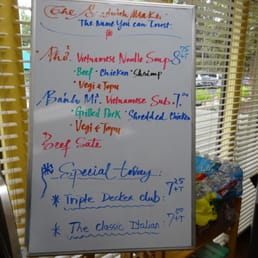 The Sandwich Maker
The Name You can Trust!
• Phở. Vietnamese Noodle Soup 8 75 +T
• Beef • Chicken • Shrimp
• Vegi & Tofu
• Bánh Mì. Vietnamese Subs. 7.00
• Grilled Pork • Shredded Chicken
• Vegi & Tofu
Beef Saté
* Special today...
* Triple Decker club: 7 25 +T
* The Classic Italian: 7 50 +T